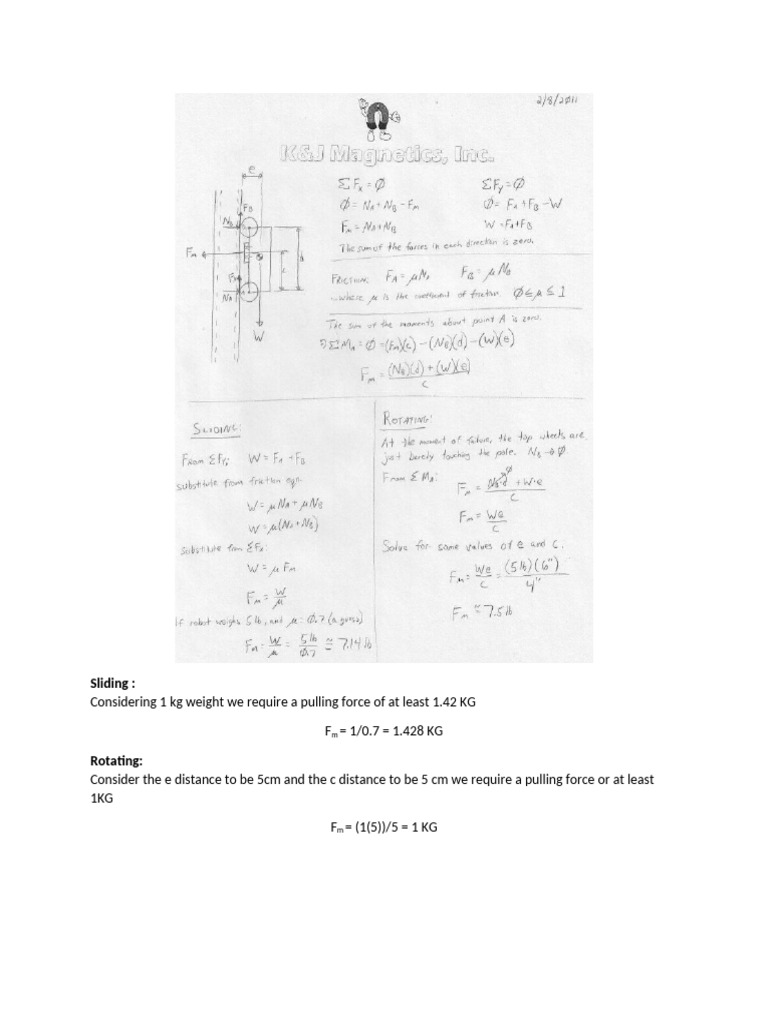 2/8/2011
K&J Magnetics, Inc.
e
F_B
N_B
F_m
d
c
F_A
N_A
W
ΣFx = Ø
Ø = NA + NB - Fm
Fm = NA + NB
ΣFy = Ø
Ø = FA + FB - W
W = FA + FB
The sum of the forces in each direction is zero.
FRICTION: FA = μNA FB = μNB
...where μ is the coefficient of friction. Ø ≤ μ ≤ 1
The sum of the moments about point A is zero.
ΣMA = Ø = (Fm)(c) - (NB)(d) - (W)(e)
Fm = (NB)(d) + (W)(e) / c
SLIDING:
From ΣFy: W = FA + FB
substitute from friction eqn.
W = μNA + μNB
W = μ(NA + NB)
substitute from ΣFx:
W = μFm
Fm = W/μ
If robot weighs 5 lb, and μ = 0.7 (a guess)
Fm = W/μ = 5 lb/0.7 ≅ 7.14 lb
ROTATING:
At the moment of failure, the top wheels are
just barely touching the pole. NB → Ø
From ΣMA: Fm = NB·d + W·e / c
Ø
Fm = We/c
Solve for some values of e and c.
Fm = We/c = (5 lb)(6")/4"
Fm ≅ 7.5 lb
Sliding :
Considering 1 kg weight we require a pulling force of at least 1.42 KG
Fm = 1/0.7 = 1.428 KG
Rotating:
Consider the e distance to be 5cm and the c distance to be 5 cm we require a pulling force or at least
1KG
Fm = (1(5))/5 = 1 KG